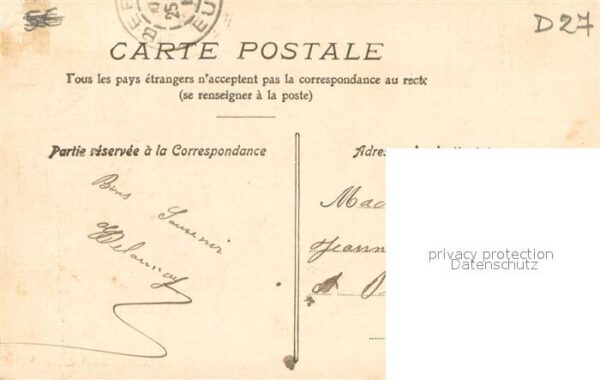 56
D27
CARTE POSTALE
Tous les pays étrangers n'acceptent pas la correspondance au recto
(se renseigner à la poste)
Partie réservée à la Correspondance
Adres
Bons
Souvenir
Delaunay
Mad
Jeann
privacy protection
Datenschutz